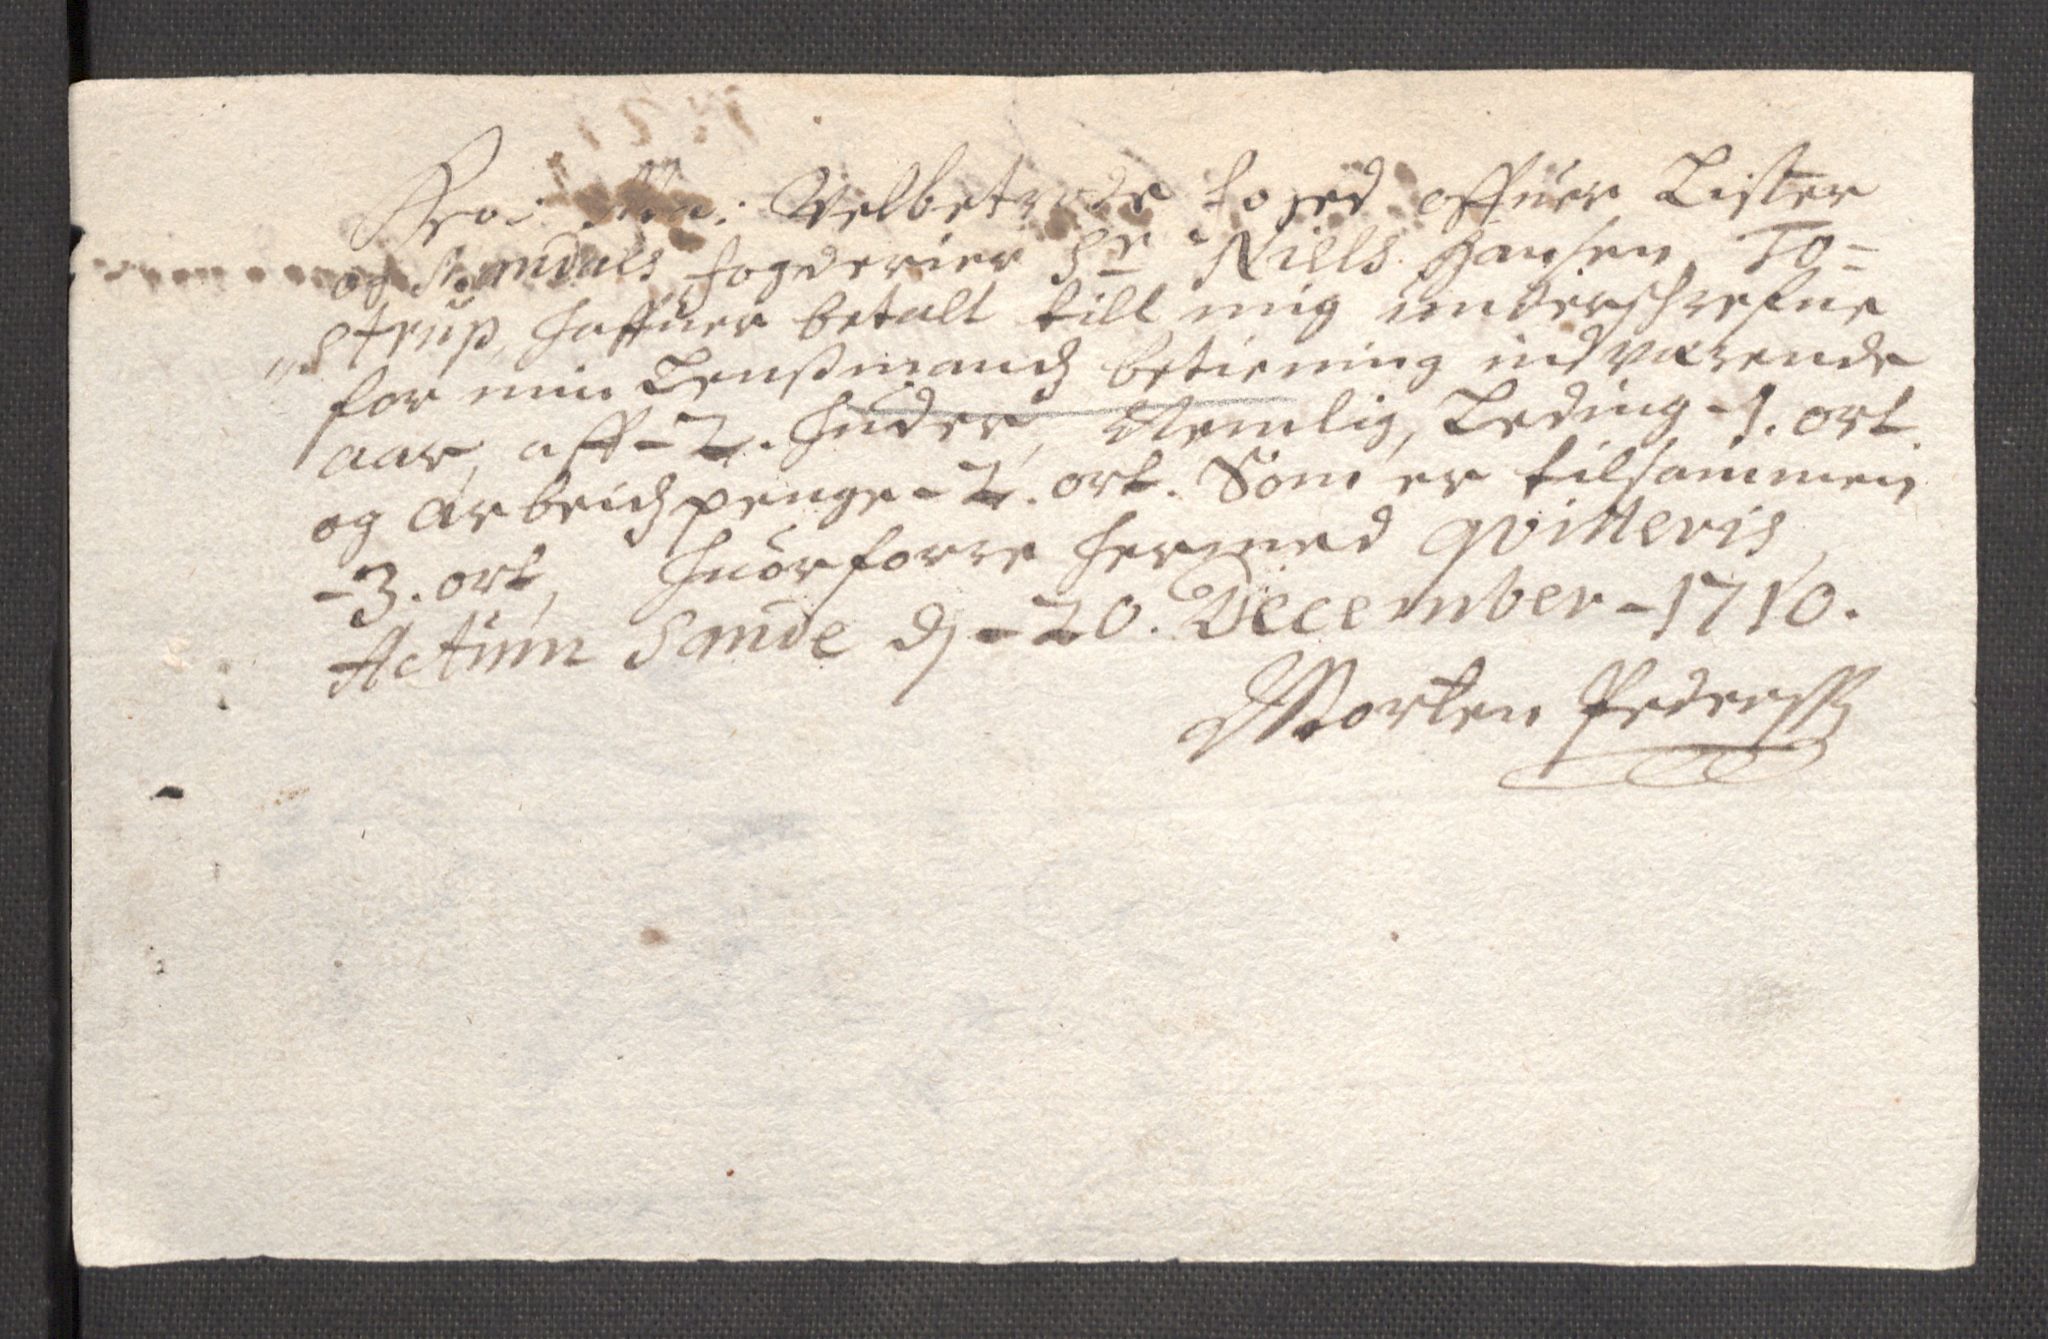 Kro: Ma: Velbetrode foged offuer Lister
og Mandals fogderier Sr Niells Hansen To=
"strup, haffuer betalt till mig underschrefne
for min Lensmandz betiening indværende
aar, aff -2. huder, Nemlig, Leding -1. ort
og arbeidzpenge -2. ort. Som er tilsammen
-3. ort, huorforre hermed qvitteris
Actum Sande dj -20. December -1710.
Morten Pederss